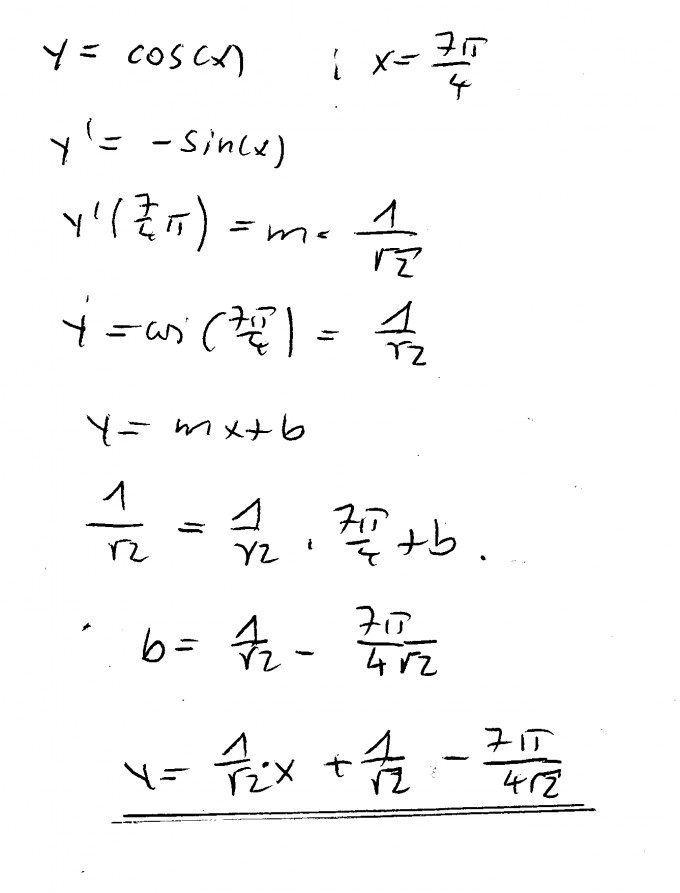 y = cos(x) ; x = 7π/4
y' = -sin(x)
y'(7/4 π) = m = 1/√2
y = cos(7π/4) = 1/√2
y = mx+b
1/√2 = 1/√2 · 7π/4 + b.
b = 1/√2 - 7π/4√2
y = 1/√2·x + 1/√2 - 7π/4√2